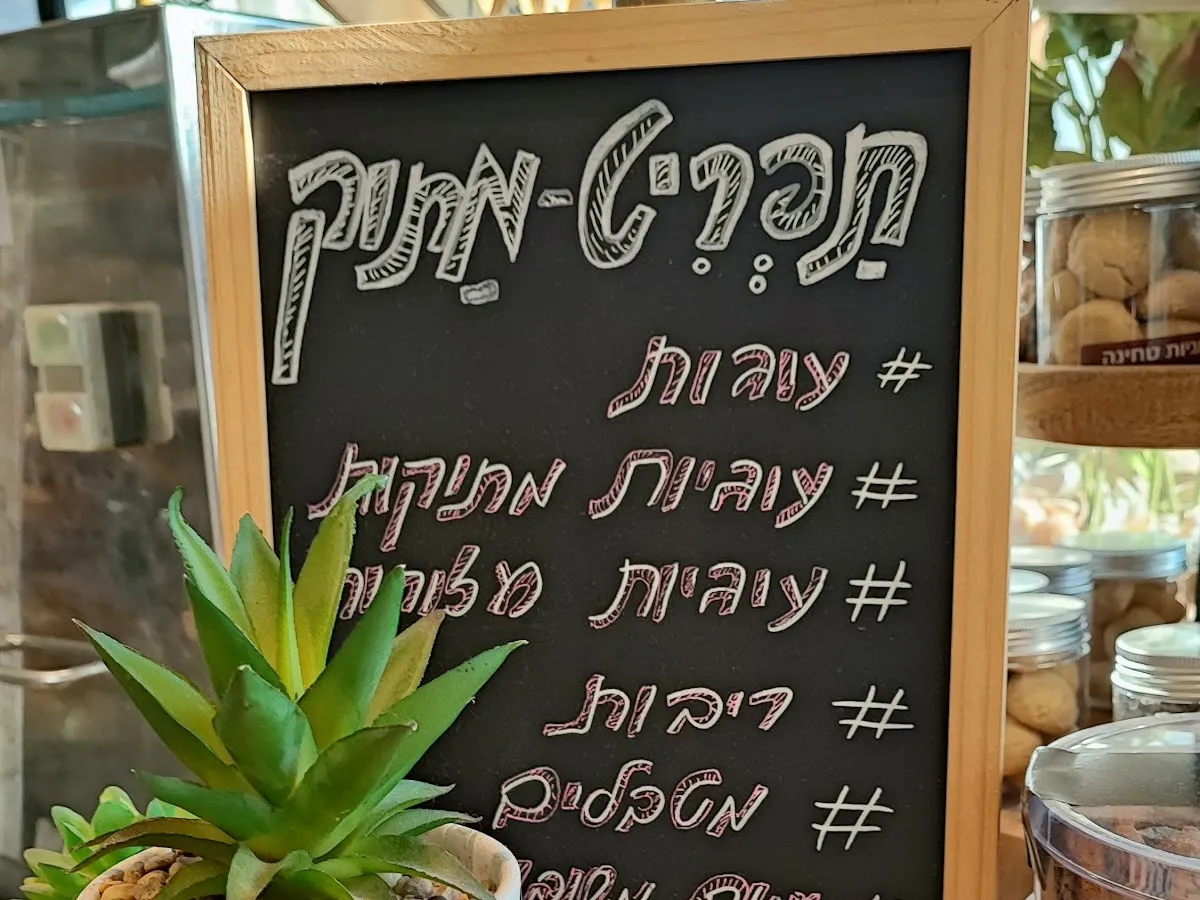 תַפְרִיט-מַתוק
# עוגות
# עוגיות מתוקות
# עוגיות מלוחות
# ריבות
# מטבלים
טחינה